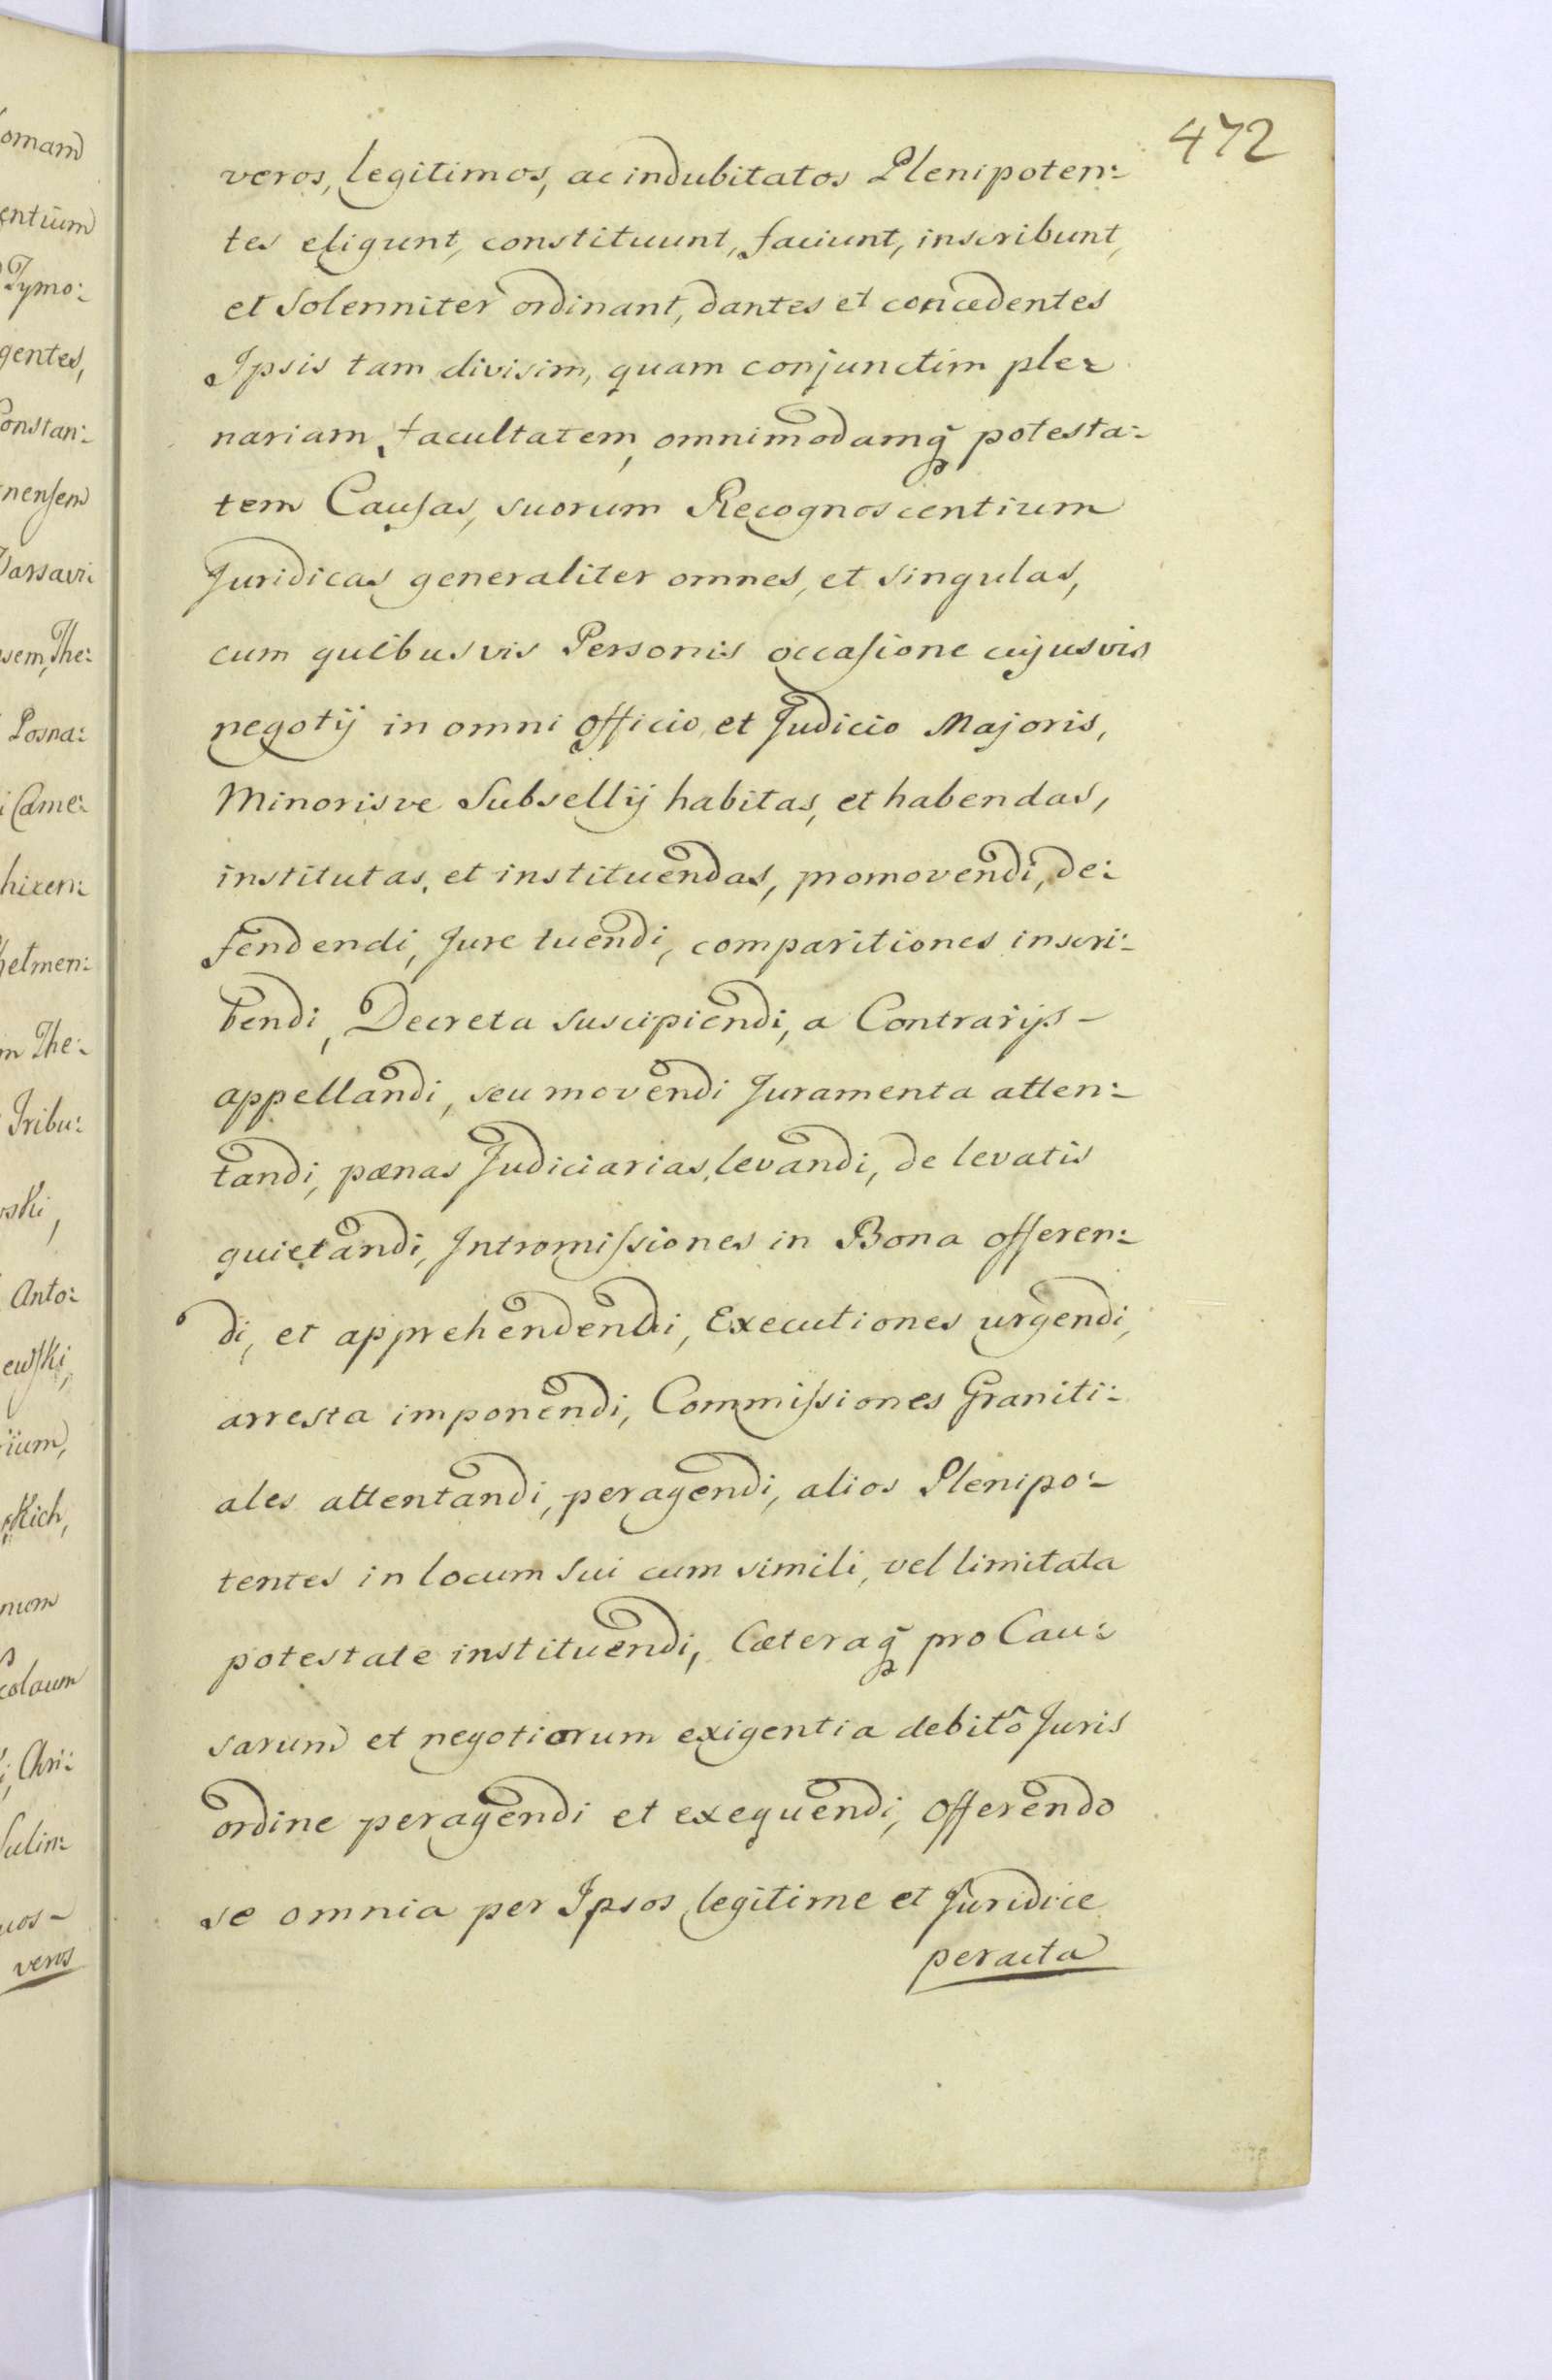 472
veros, legitimos, ac indubitatos Plenipoten:
tes eligunt, constituunt, faciunt, inscribunt,
et Solenniter ordinant, dantes et concedentes
Ipsis tam divisim, quam conjunctim ple:
nariam facultatem, omnimodamq̃ potesta:
tem Causas, suorum Recognoscentium
Juridicas generaliter omnes, et singulas,
cum quibusvis Personis occasione cujusvis
negotij in omni Officio, et Judicio Majoris,
Minorisve Subsellij habitas, et habendas,
institutas, et instituendas, promovendi, de:
fendendi, Jure tuendi, comparitiones inscri:
bendi, Decreta suscipiendi, a Contrarijs -
appellandi, seu movendi Juramenta atten:
tandi, pœnas Judiciarias, levandi, de levatis
quietandi, Intromissiones in Bona offeren:
di, et apprehendendi, Executiones urgendi,
arresta imponendi, Commissiones Graniti:
ales attentandi, peragendi, alios Plenipo:
tentes in locum sui cum simili, vel limitata
potestate instituendi, Cæteraq̃ pro Cau:
sarum et negotiorum exigentia debitô Juris
ordine peragendi et exequendi, Offerendo
se omnia per Ipsos legitime et Juridice
peracta
omam
entium
Tymo:
gentes,
Constan:
nensem
Varsavi:
sem, The:
Posna:
i Came:
hixen:
helmen:
m The:
Tribu:
ski,
Anto:
ewski,
rium,
skich,
num
colaum
i, Chri:
Sulim:
uos -
veros